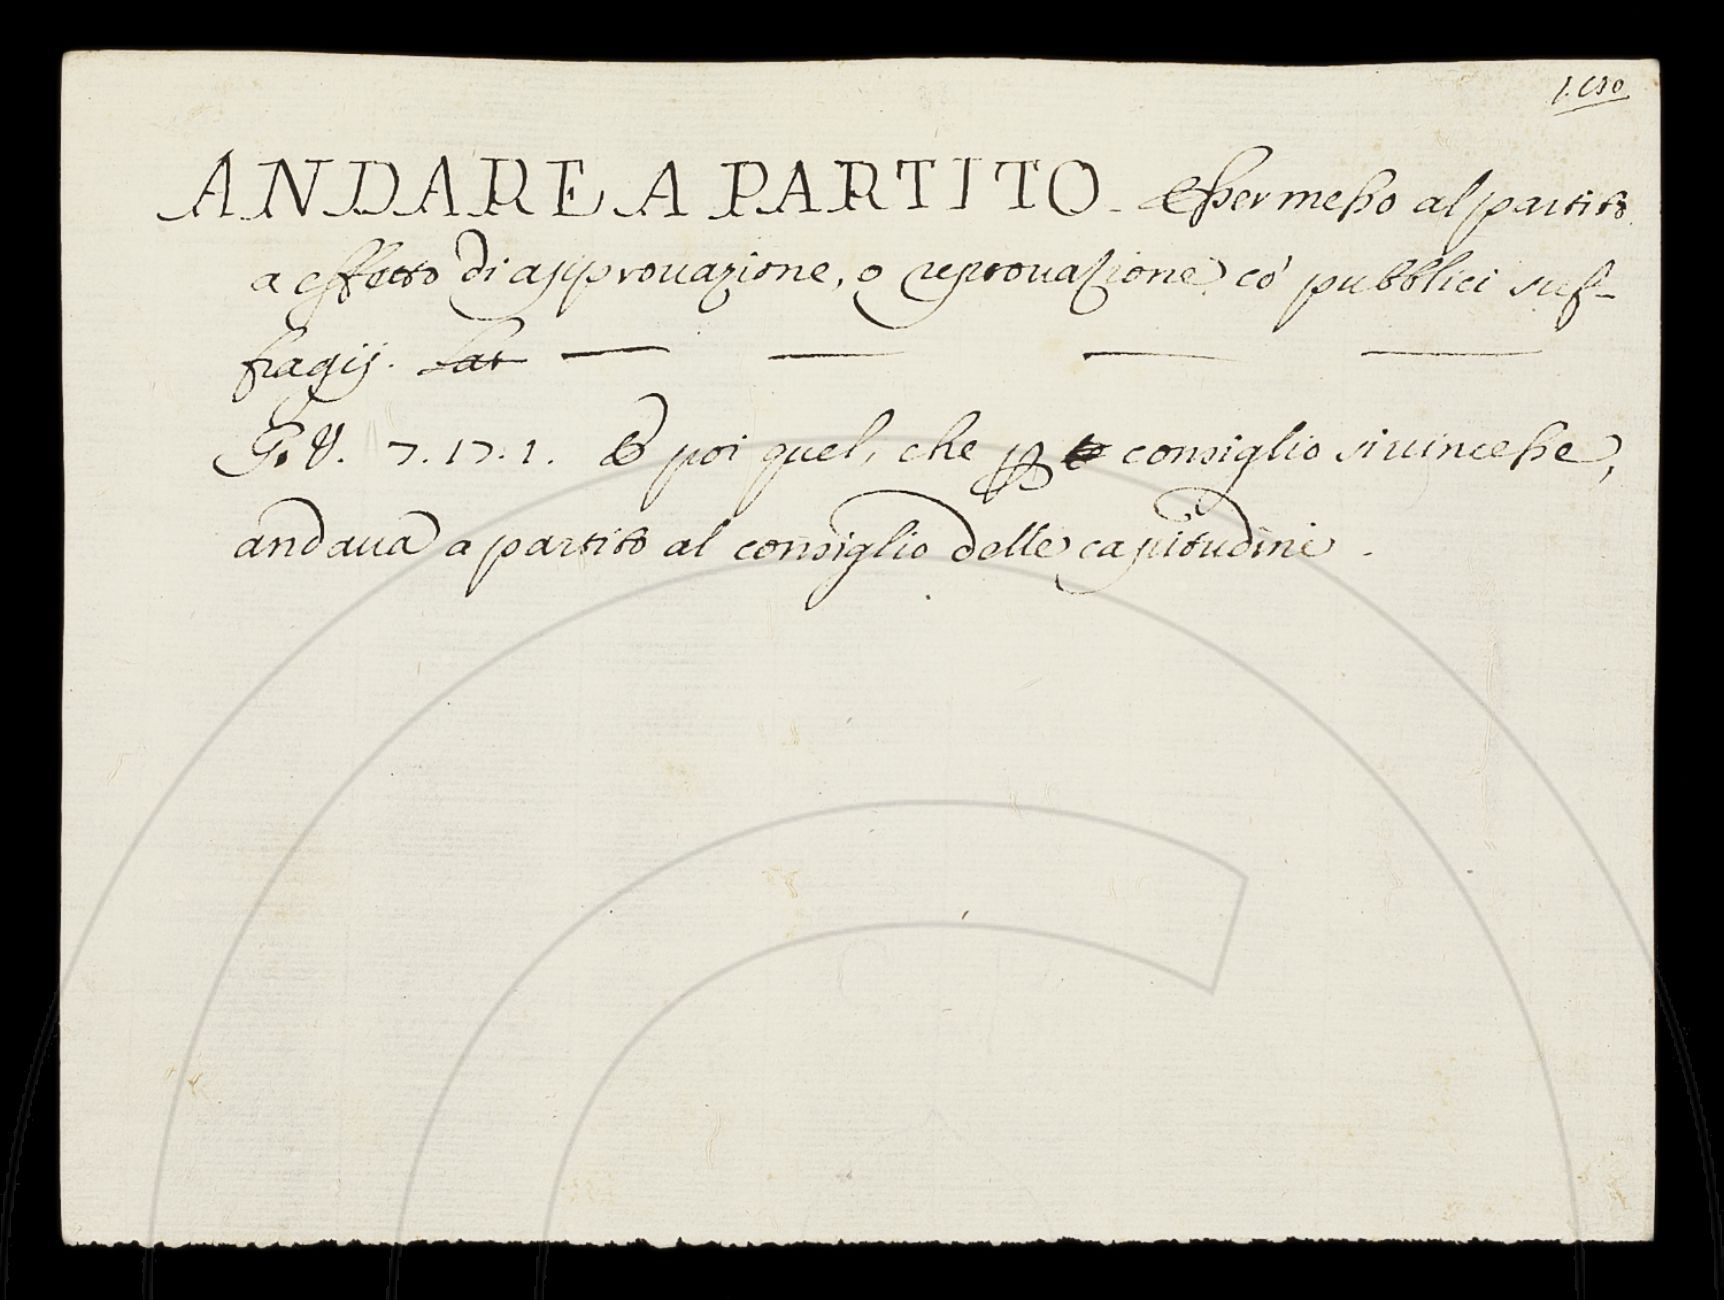 ANDARE A PARTITO. Esser messo al partito
a effetto di approuazione, o reprouazione có pubblici suf-
fragij. Lat
G. V. 7. 17. 1. E poi quel, che p consiglio si uincesse,
andaua a partito al consiglio delle capitudini.